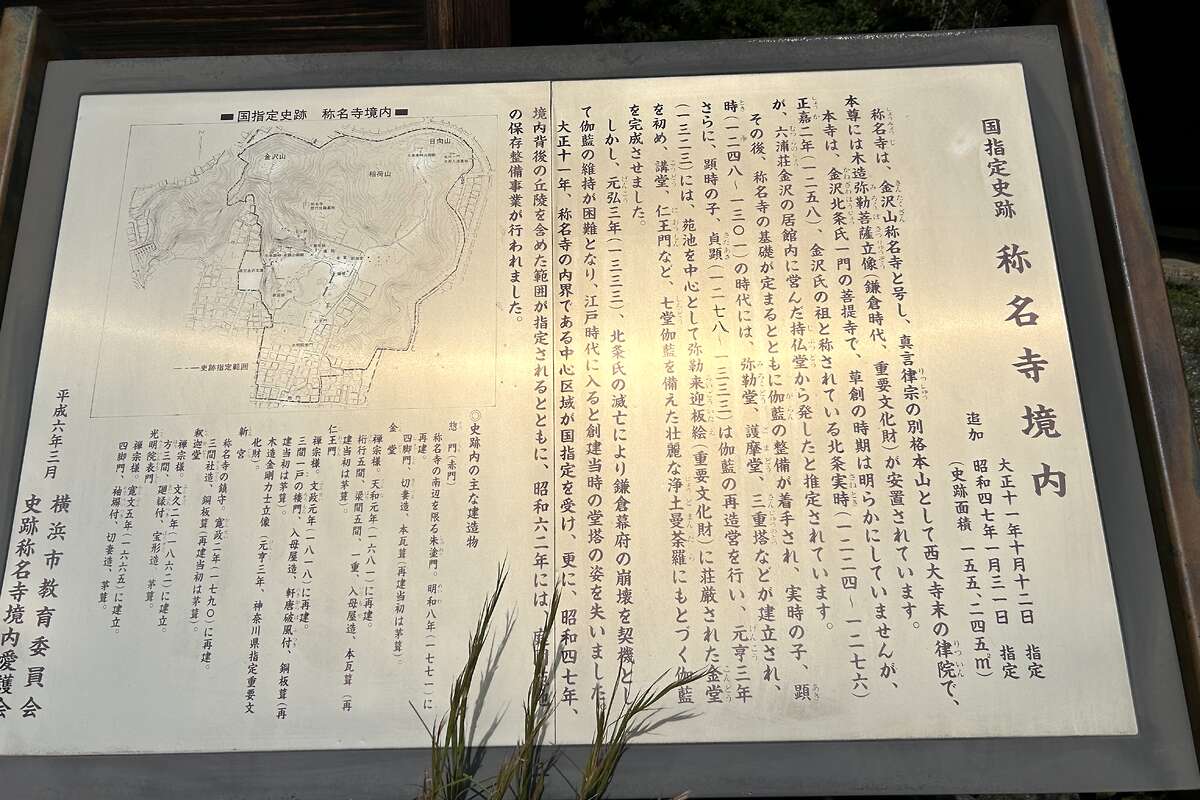 国指定史跡 称名寺境内
大正十一年十月十二日 指定
追加 昭和四七年一月三一日 指定
(史跡面積 一五五、二四五㎡)
称名寺は、金沢山称名寺と号し、真言律宗の別格本山として西大寺末の律院で、
本尊には木造弥勒菩薩立像(鎌倉時代、重要文化財)が安置されています。
本寺は、金沢北条氏一門の菩提寺で、草創の時期は明らかにしていませんが、
正嘉二年(一二五八)、金沢氏の祖と称されている北条実時(一二二四～一二七六)
が、六浦荘金沢の居館内に営んだ持仏堂から発したと推定されています。
その後、称名寺の基礎が定まるとともに伽藍の整備が着手され、実時の子、顕
時(一二四八～一三〇一)の時代には、弥勒堂、護摩堂、三重塔などが建立され、
さらに、顕時の子、貞顕(一二七八～一三三三)は伽藍の再造営を行い、元亨三年
(一三二三)には、苑池を中心として弥勒来迎板絵(重要文化財)に荘厳された金堂
を初め、講堂、仁王門など、七堂伽藍を備えた壮麗な浄土曼荼羅にもとづく伽藍
を完成させました。
しかし、元弘三年(一三三三)、北条氏の滅亡により鎌倉幕府の崩壊を契機とし
て伽藍の維持が困難となり、江戸時代に入ると創建当時の堂塔の姿を失いました。
大正十一年、称名寺の内界である中心区域が国指定を受け、更に、昭和四七年、
境内背後の丘陵を含めた範囲が指定されるとともに、昭和六二年には、
の保存整備事業が行われました。
■国指定史跡 称名寺境内■
金沢山
日向山
稲荷山
史跡指定範囲
◎史跡内の主な建造物
惣門(赤門)
称名寺の南辺を限る朱塗門。明和八年(一七七一)に
再建。
四脚門、切妻造、本瓦葺(再建当初は茅葺)。
金堂
禅宗様。天和元年(一六八一)に再建。
桁行五間、梁間五間、一重、入母屋造、本瓦葺(再
建当初は茅葺)。
仁王門
禅宗様。文政元年(一八一八)に再建。
三間一戸の楼門、入母屋造、軒唐破風付、銅板葺(再
建当初は茅葺)。
木造金剛力士立像(元亨三年、神奈川県指定重要文
化財)。
新宮
称名寺の鎮守。寛政二年(一七九〇)に再建。
三間社造、銅板葺(再建当初は茅葺)。
釈迦堂
禅宗様、文久二年(一八六二)に建立。
方三間、廻縁付、宝形造、茅葺。
光明院表門
禅宗様。寛文五年(一六六五)に建立。
四脚門、袖塀付、切妻造、茅葺。
平成六年三月
横浜市教育委員会
史跡称名寺境内愛護会